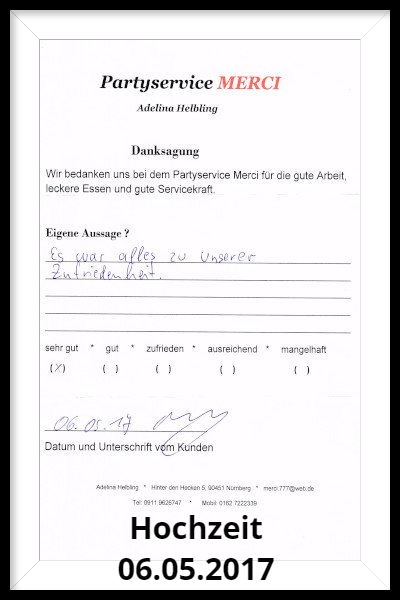 Partyservice MERCI
Adelina Helbling
Danksagung
Wir bedanken uns bei dem Partyservice Merci für die gute Arbeit,
leckere Essen und gute Servicekraft.
Eigene Aussage ?
Es war alles zu unserer
Zufriedenheit.
sehr gut * gut * zufrieden * ausreichend * mangelhaft
(X) ( ) ( ) ( ) ( )
06.05.17
Datum und Unterschrift vom Kunden
Adelina Helbling * Hinter den Hecken 5, 90451 Nürnberg * merci.777@web.de
Tel: 0911 9626747 * Mobil: 0162 7222339
Hochzeit
06.05.2017